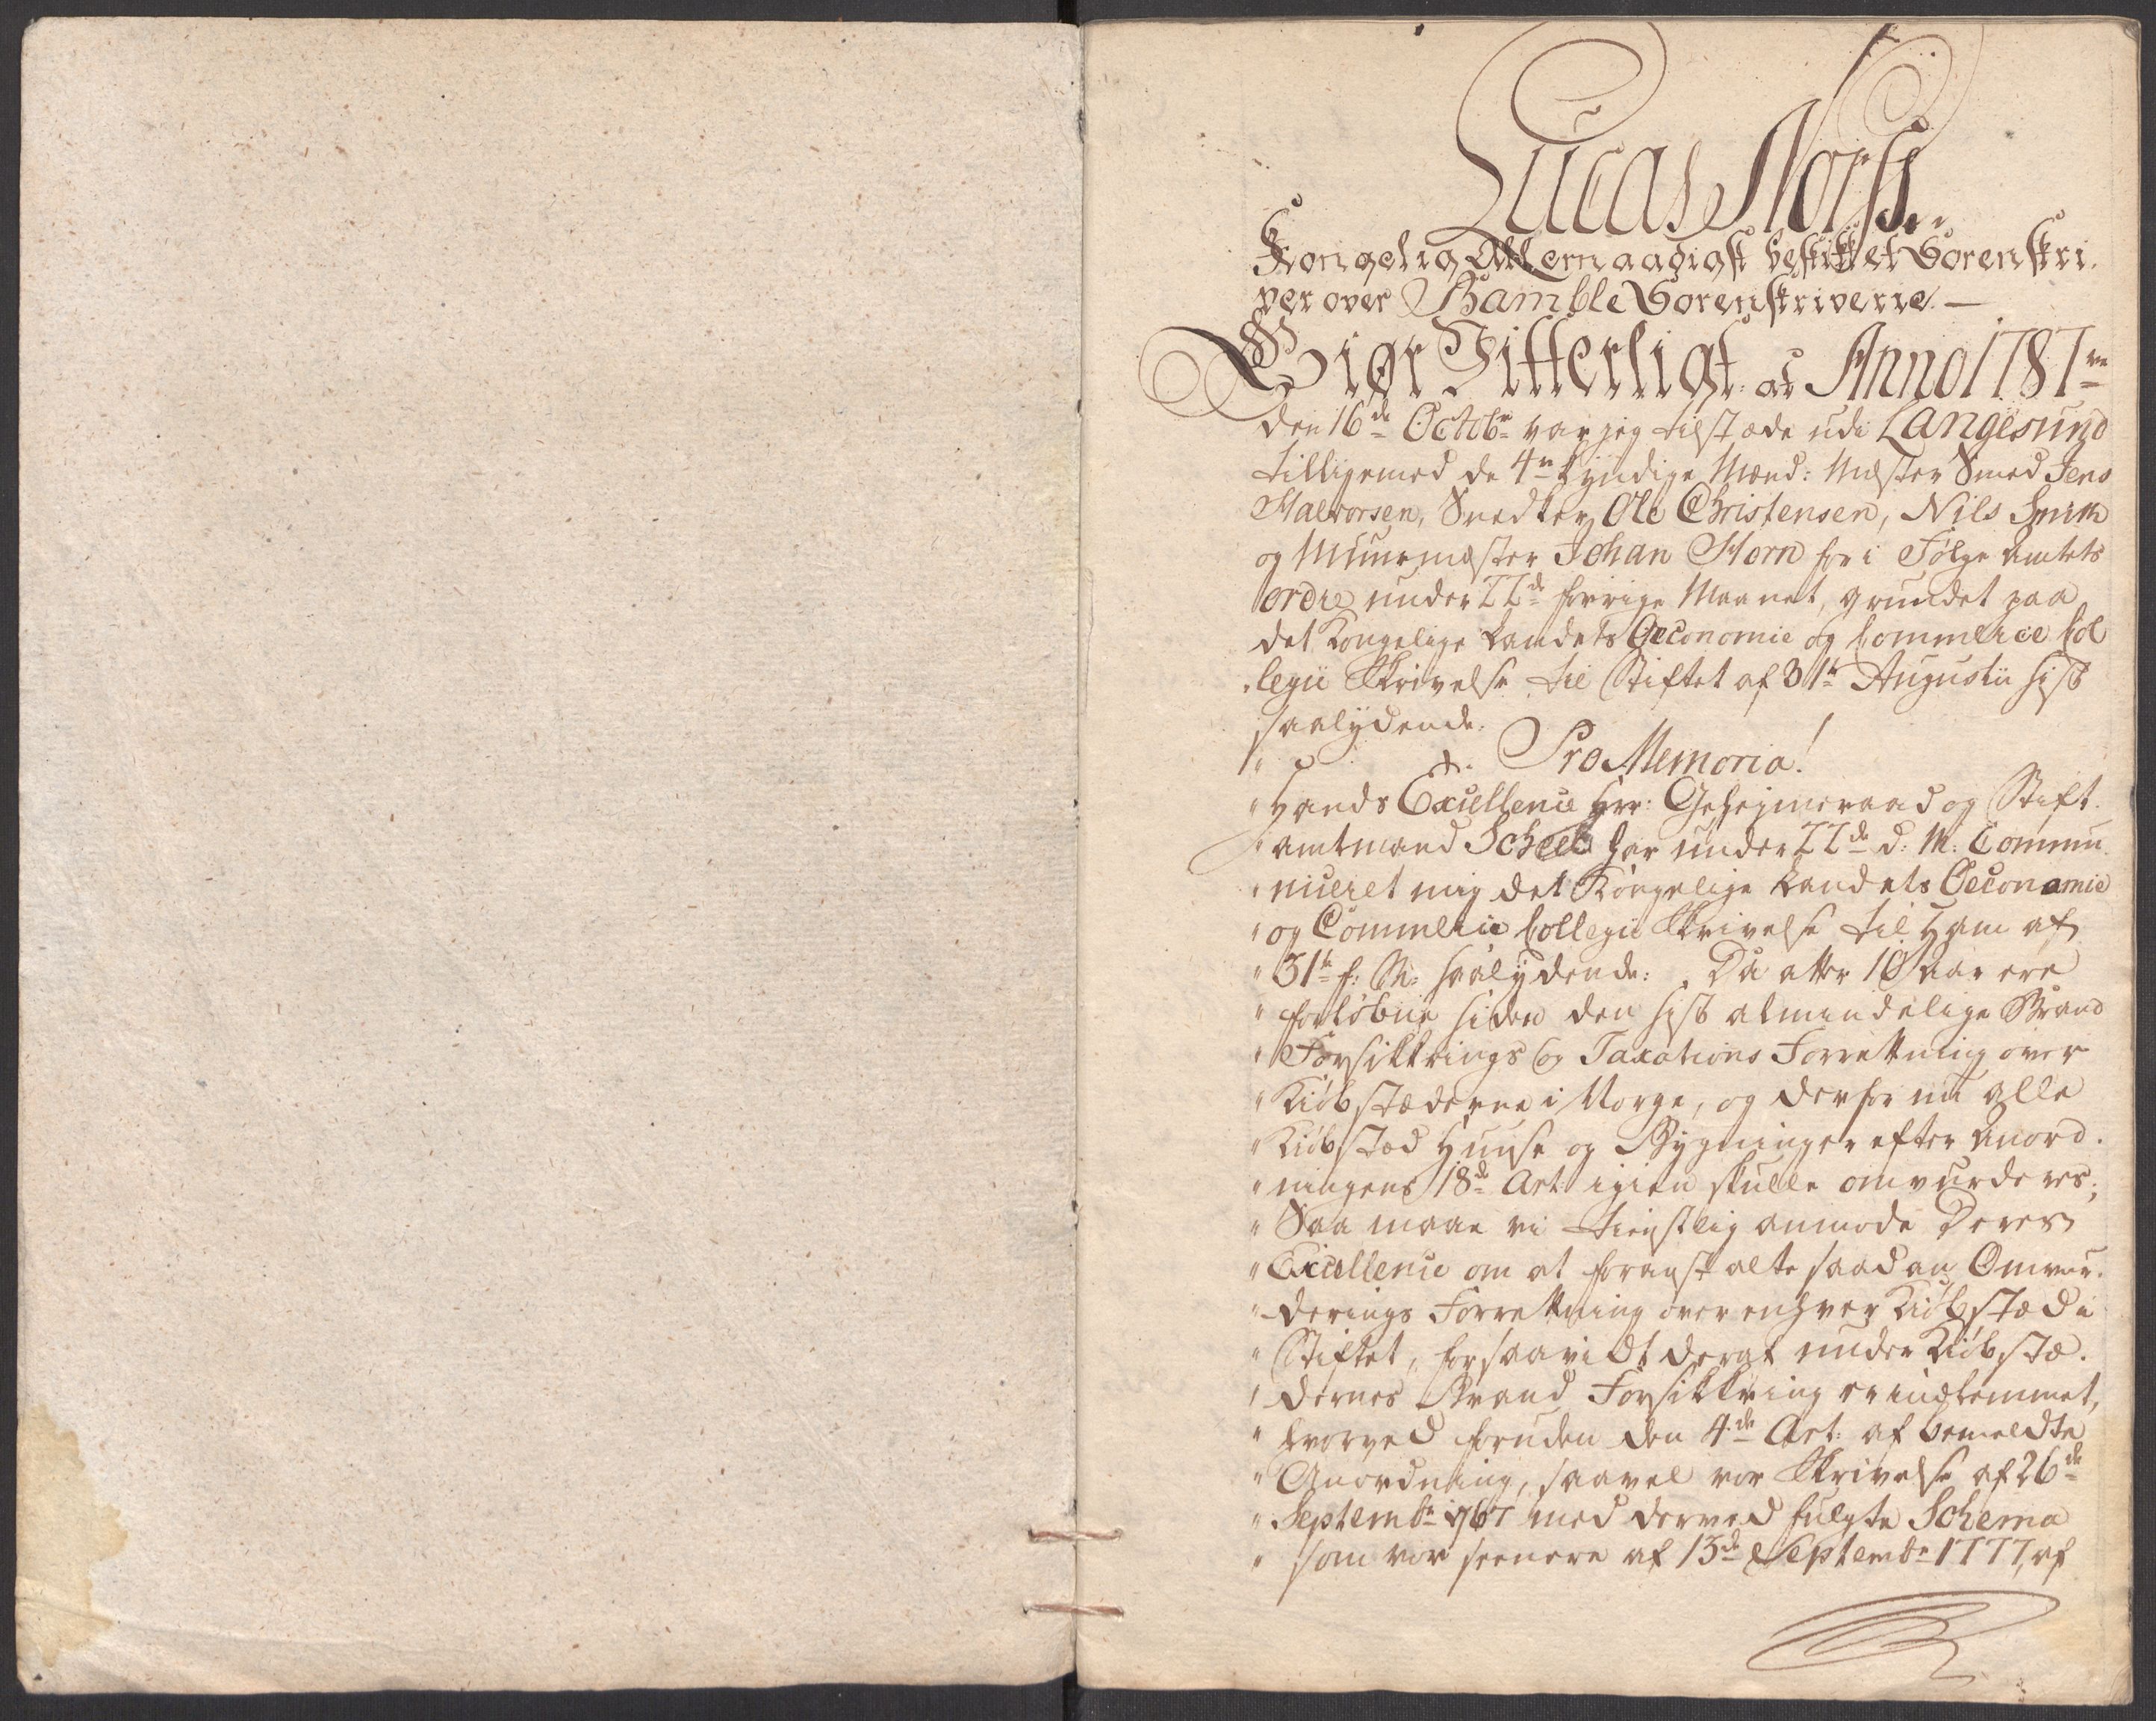 Lucas Norst.
Kongelig Allernaadigst bestikket Sorenskri-
ver over Bamble Sorenskriverie. —
Giør Vitterligt: at Anno 1787ve
den 16de Octobr var jeg tilstæde udi Langesund
tilligemed de 4re kyndige Mænd: Mæster Smed Jens
Halvorsen, Snedker Ole Christensen, Nils Smith
og Muurmæster Johan Horn for i Følge Amtets
ordre under 22de forrige Maanet, grundet paa
det Kongelige Landets Oeconomie og Commerce Col
legii Skrivelse til Stiftet af 31te Augustii sist
saalydende.
" Pro Memoria!
" Hands Excellence Hrr: Geheimeraad og Stift-
" amtmand Scheel har under 22de d: M: Commu-
" niceret mig det Kongelige Landets Oeconomie
" og Commerce Collegii Skrivelse til Ham af
" 31te f: M: saalydende: Da atter 10 Aar ere
" forløbne siden den sist almindelige Brand
" Forsikkrings og Taxations Forretning over
" Kiøbstæderne i Norge, og derfor nu alle
" Kiøbstæd Huuse og Bygninger efter Anord-
" ningens 18de Art: igien skulle omvurderes;
" Saa maae vi tienstlig anmode Deres
" Excellence om at foranstalte saadan Omvur-
" derings Forretning over enhver Kiøbstæd i
" Stiftet, forsaavidt deraf under Kiøbstæ-
" dernes Brand Forsikkring er indlemmet,
" hvorved foruden den 4de Art: af bemeldte
" Anordning, saavel vor Skrivelse af 26de
" Septembr 1767 med derved fulgte Schema
" som vor seenere af 13de Septembr 1777, af